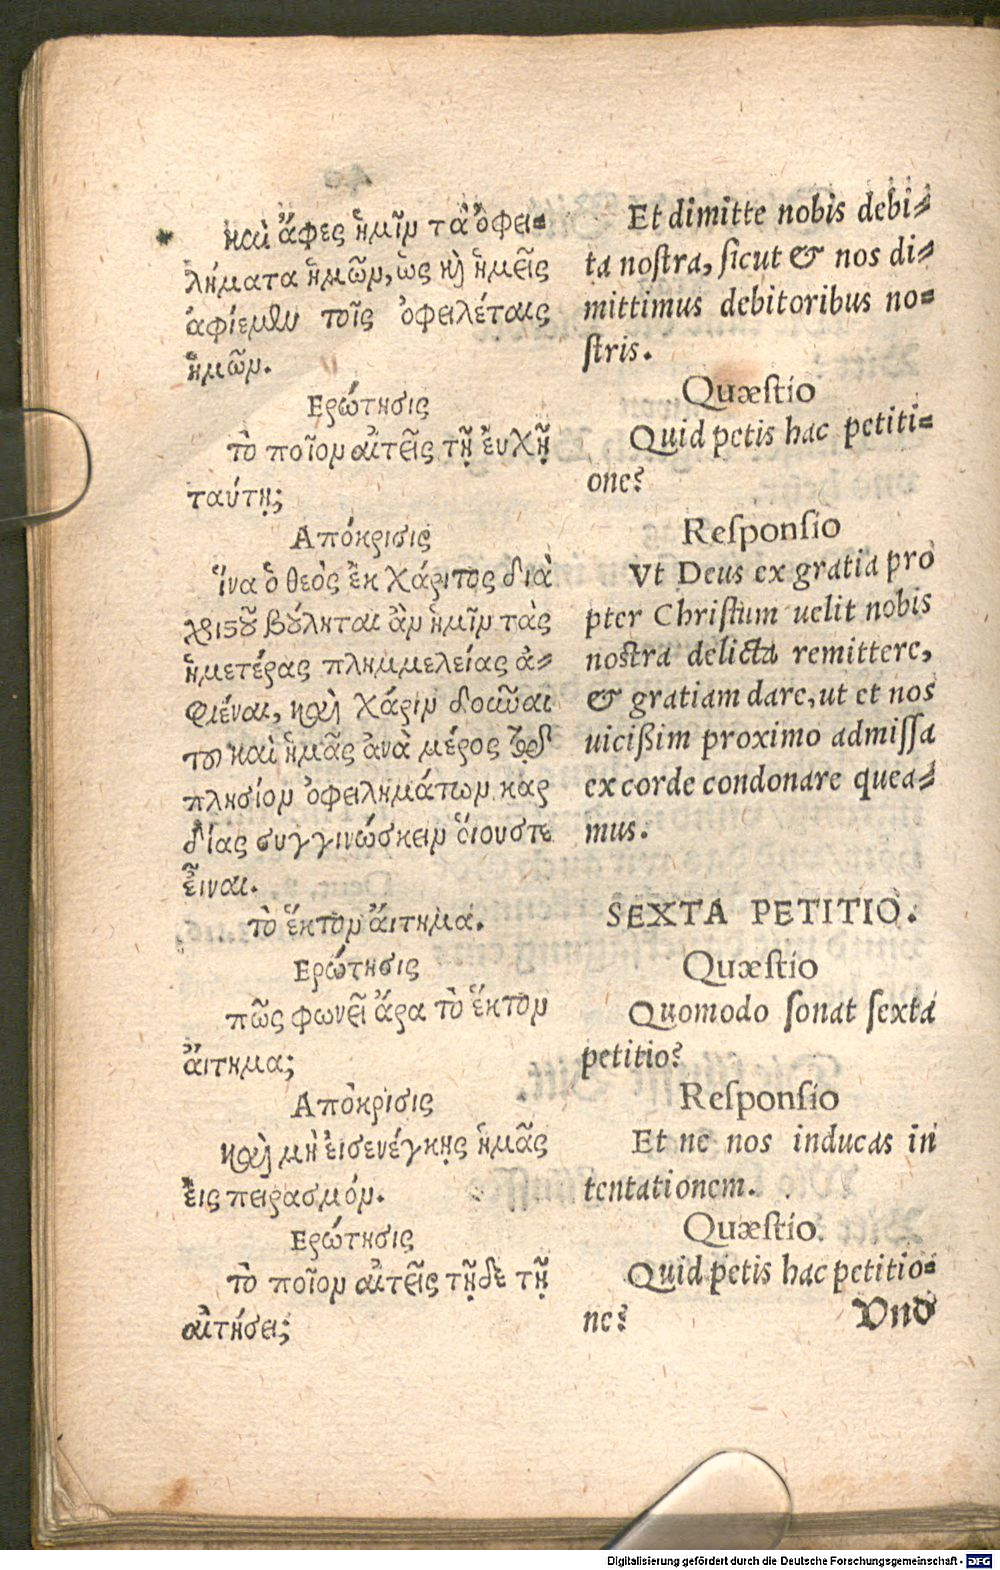 καὶ ἄφες ἡμῖν τὰ ὀφει=
λήματα ἡμῶν, ὡς καὶ ἡμεῖς
ἀφίεμεν τοῖς ὀφειλέταις
ἡμῶν.
Ερώτησις
τὸ ποῖον αἰτεῖς τῇ ἐυχῇ
ταύτῃ;
Απόκρισις
ἵνα ὁ θεὸς ἐκ χάριτος διὰ
χριστοῦ βούληται ἂν ἡμῖν τὰς
ἡμετέρας πλημμελείας ἀ=
φιέναι, καὶ χάριν δοῦναι
τοῦ καὶ ἡμᾶς ἀνὰ μέρος
πλησίον ὀφειλημάτων καρ
δίας συγγινώσκειν
εἶναι.
τὸ ἕκτον ἄιτημα.
Ερώτησις
πῶς φωνεῖ ἄρα τὸ ἕκτον
ἄιτημα;
Απόκρισις
καὶ μὴ ἐισενέγκῃς ἡμᾶς
ἐις πειρασμόν.
Ερώτησις
τὸ ποῖον αἰτεῖς τῇδε τῇ
αἰτήσει;
Et dimitte nobis debi=
ta nostra, sicut & nos di=
mittimus debitoribus no=
stris.
Quæstio
Quid petis hac petiti=
one?
Responsio
Vt Deus ex gratia pro
pter Christum uelit nobis
nostra delicta remittere,
& gratiam dare, ut et nos
uicißim proximo admissa
ex corde condonare quea=
mus.
SEXTA PETITIO.
Quæstio
Quomodo sonat sexta
petitio?
Responsio
Et ne nos inducas in
tentationem.
Quæstio
Quid petis hac petitio=
ne?
Vnd
Digitalisierung gefördert durch die Deutsche Forschungsgemeinschaft - DFG